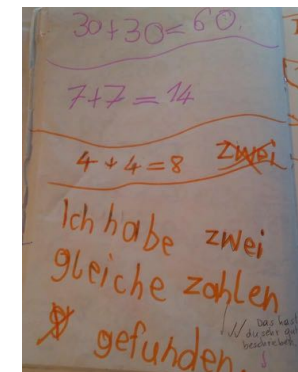 30+30=60.
7+7=14
4+4=8 zwei
Ich habe zwei
gleiche zahlen
gefunden.
Das hast
du sehr gut
beschrieben